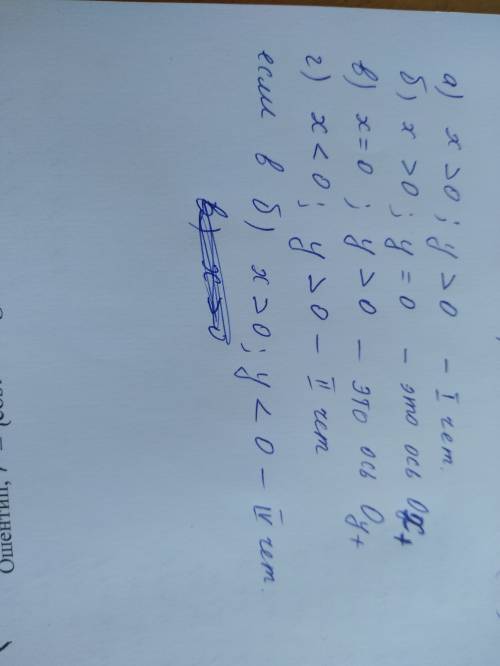 а) x > 0; y > 0 – I чет.
б) x > 0; y = 0 – это ось Ox+
в) x = 0; y > 0 – это ось Oy+
г) x < 0; y > 0 – II чет
если в б) x > 0; y < 0 – IV чет.